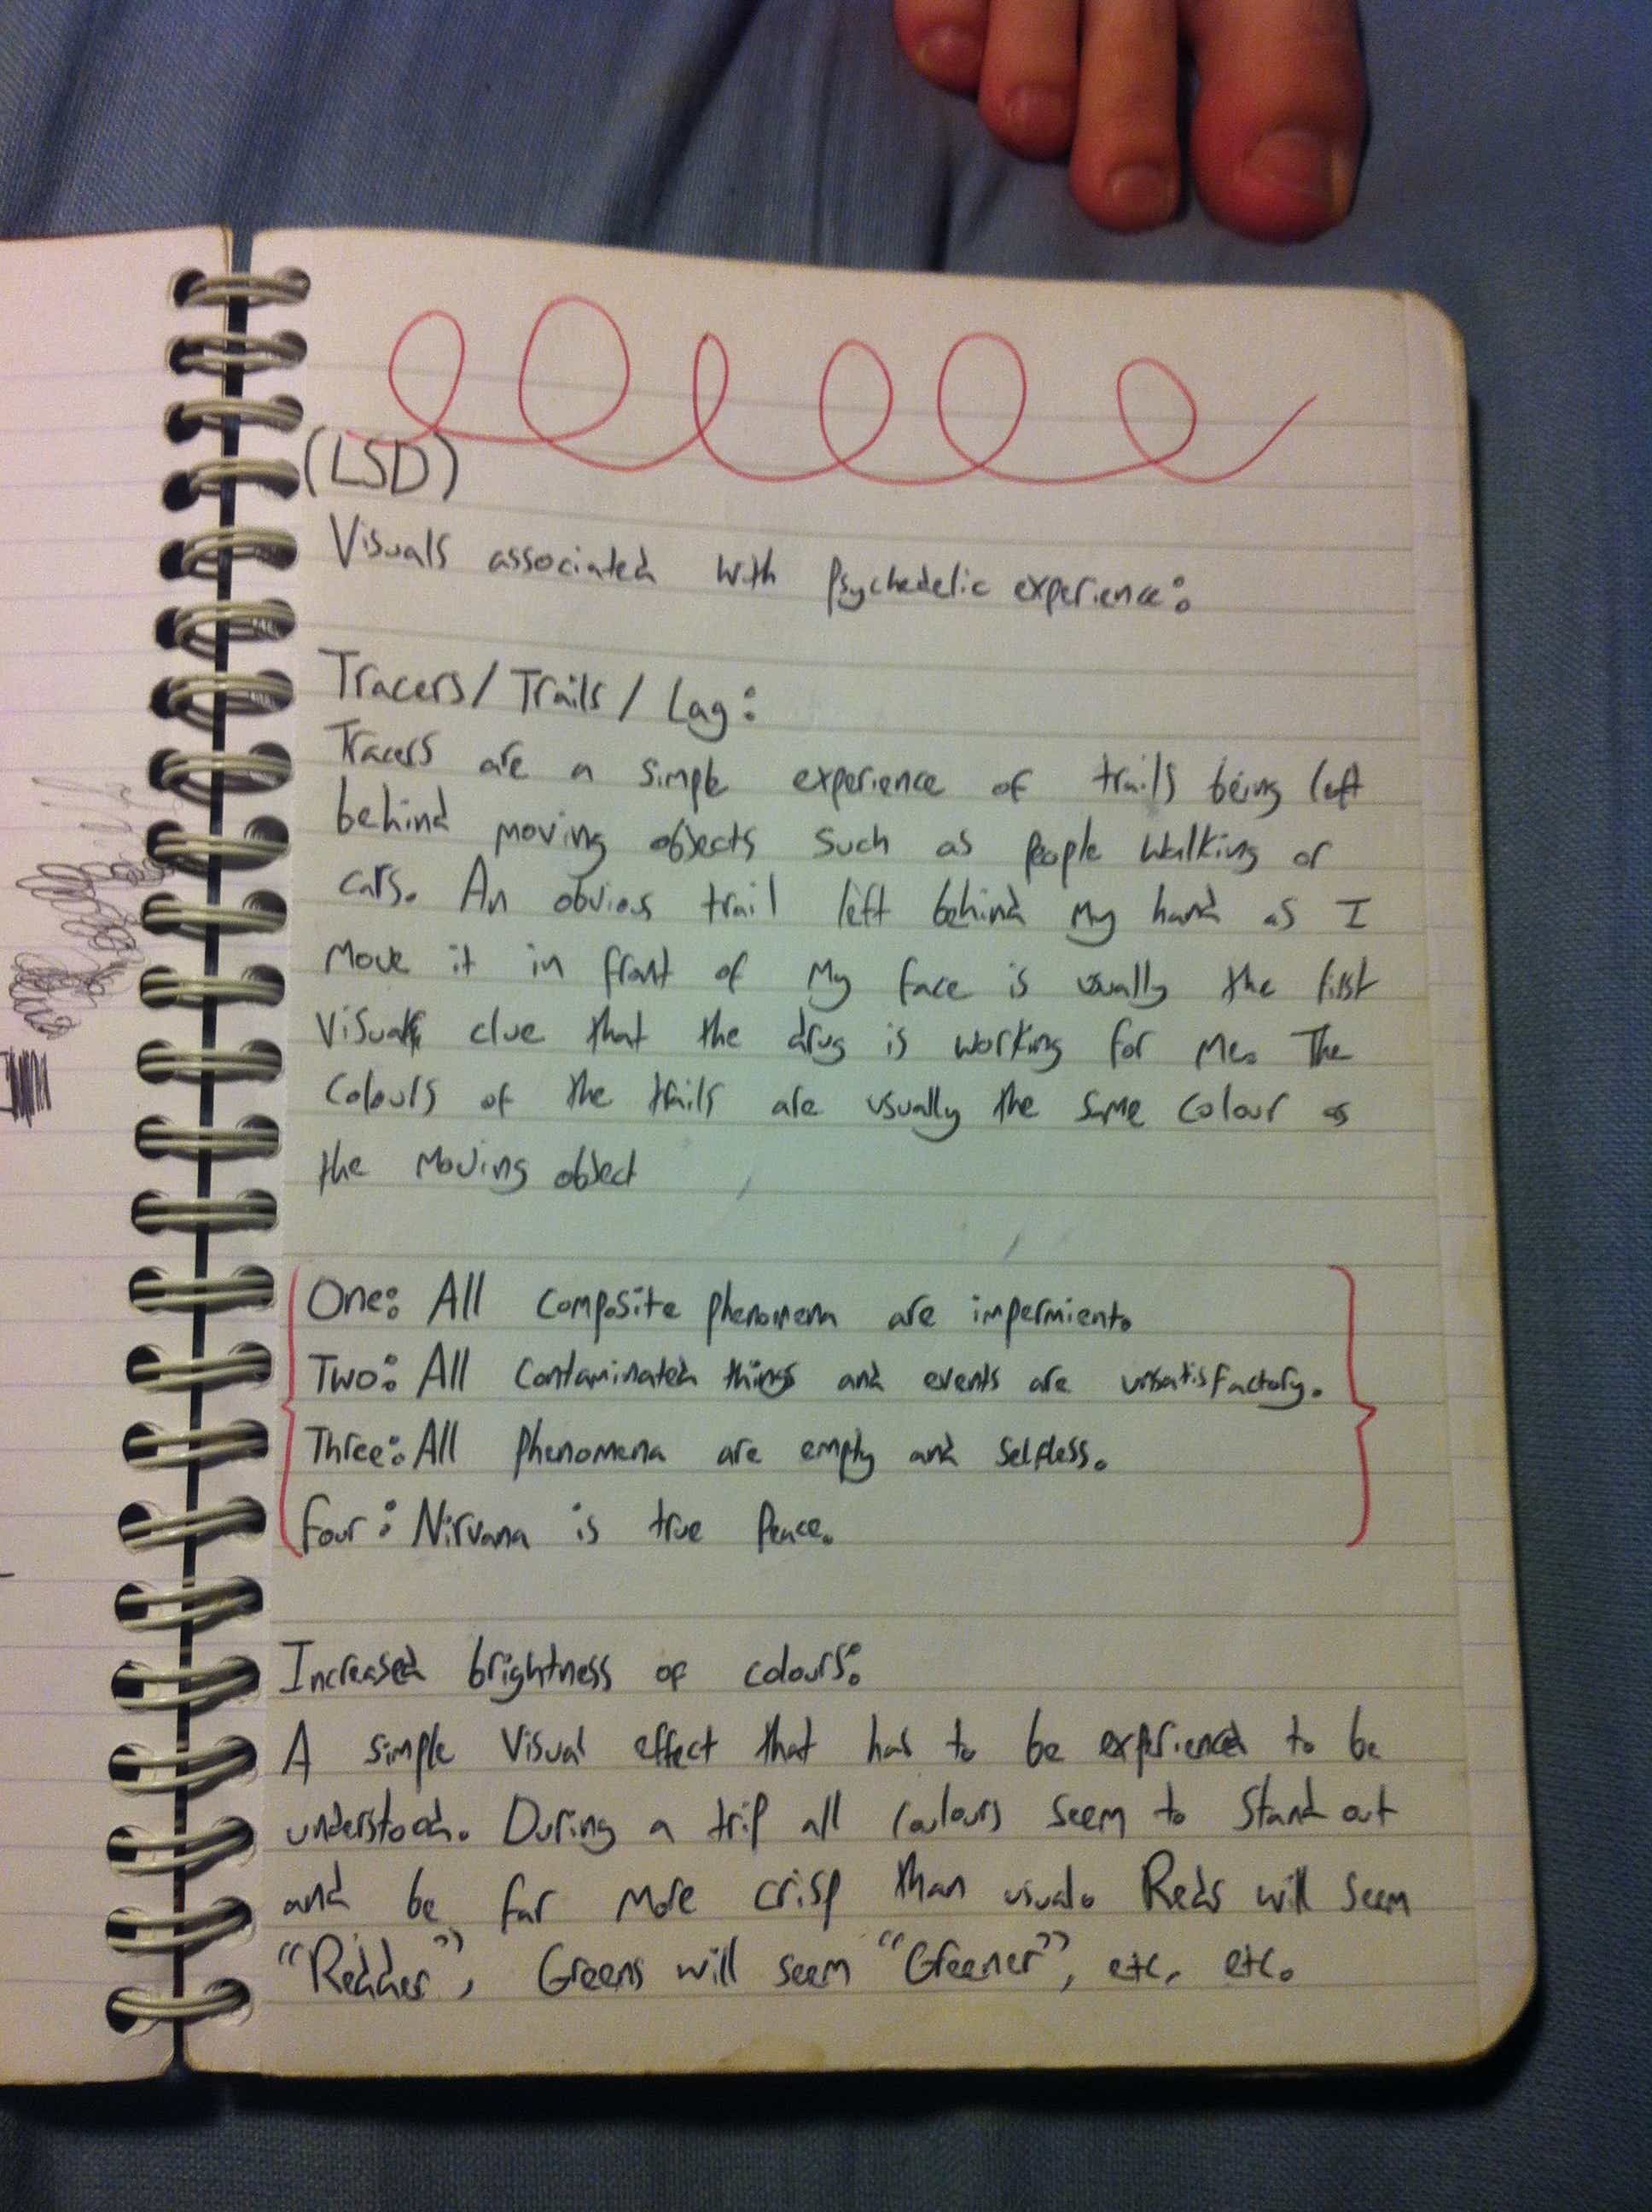 (LSD)
Visuals associated with Psychedelic experience:
Tracers/Trails/Lag:
Tracers are a simple experience of trails being left
behind moving objects such as people walking or
cars. An obvious trail left behind my hand as I
move it in front of my face is usually the first
visual clue that the drug is working for me. The
colours of the trails are usually the same colour as
the moving object
One: All composite phenomena are impermient.
Two: All contaminated things and events are unsatisfactory.
Three: All phenomena are empty and selfless.
Four: Nirvana is true Peace.
Increased brightness of colours:
A simple visual effect that has to be experienced to be
understood. During a trip all colours seem to stand out
and be far more crisp than usual. Reds will seem
"Redder", Greens will seem "Greener", etc. etc.